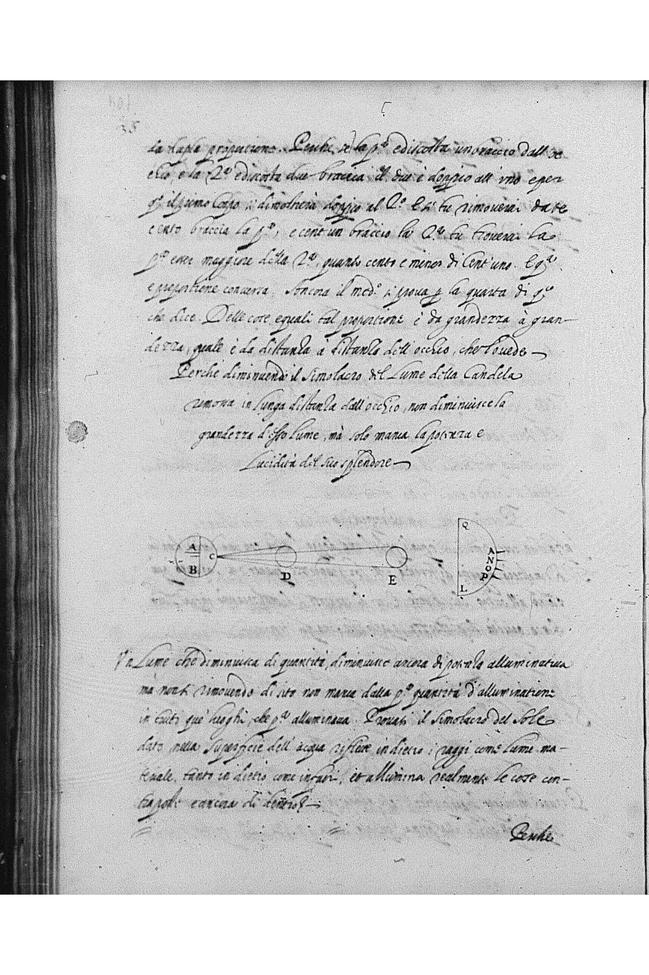 da dupla proportione. Perche se la p.ª è discosta un braccio dall oc
chio, e la 2.ª è discosta due braccia il due è doppio all' uno e per
q.º il primo corpo si dimostrerà doppio al 2.º E se tu rimoverai da te
cento braccia la p.ª, e cent'un braccio la 2.ª tu troverai la
p.ª esser maggiore della 2.ª, quanto cento è minor di Cent'uno. E q.ª
è proportione conversa. Ancora il med.º si prova p la quarta di q.º
che dice. Delle cose equali tal proportione è da grandezza à gran-
dezza, quale è da distanza à distanza dell' occhio, che le vede
Perche diminuendo il Simolacro del Lume della Candela
remossa in lunga distanza dall'occhio, non diminuisce la
grandezza d'esso lume, mà solo manca la potenza e
lucidità del suo splendore
A
B
C
D
E
Q
L
A
N
O
P
Un Lume che diminuisca di quantità, diminuisce ancora di potenza alluminativa
mà non si rimovendo di sito non manca dalla p.ª quantità d'alluminatione
in tutti que' luoghi, che p.ª alluminava. Provasi il Simolacro del Sole
dato nella superficie dell' acqua riflette in dietro i raggi come lume ma-
teriale, tanto in dietro come infuori, et allumina realmente le cose con-
trapostè e ancora di dentro
Perche